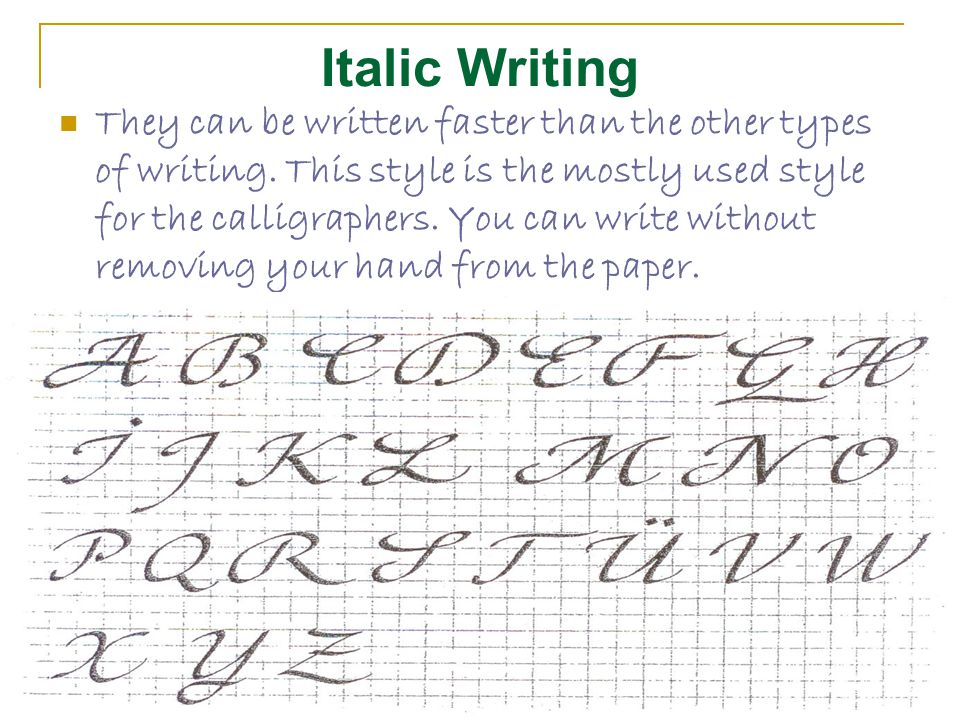 Italic Writing
They can be written faster than the other types
of writing. This style is the mostly used style
for the calligraphers. You can write without
removing your hand from the paper.
A B C D E F G H
İ J K L M N O
P Q R S T Ü V W
X Y Z